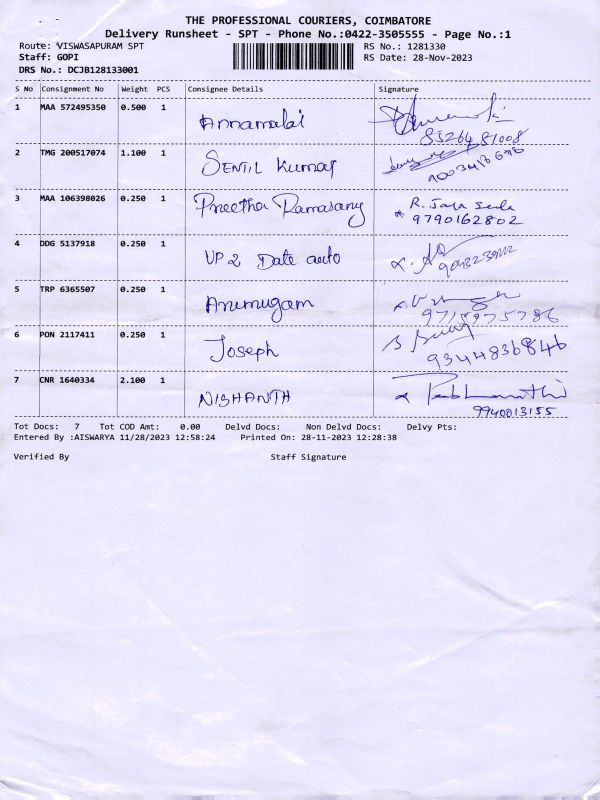 THE PROFESSIONAL COURIERS, COIMBATORE
Delivery Runsheet - SPT - Phone No.:0422-3505555 - Page No.:1
Route: VISWASAPURAM SPT RS No.: 1281330
Staff: GOPI RS Date: 28-Nov-2023
DRS No.: DCJB128133001
S No Consignment No Weight PCS Consignee Details Signature
1 MAA 572495350 0.500 1 Annamalai
8526481008
2 TMG 200517074 1.100 1 SENTIL Kumar
3 MAA 106398026 0.250 1 Preetha Ramasamy R. Jaya
9790162802
4 DDG 5137918 0.250 1 VP 2 Date auto
5 TRP 6365507 0.250 1 Arumugam
9715975786
6 PON 2117411 0.250 1 Joseph
9344836846
7 CNR 1640334 2.100 1 NISHANTH
9940013155
Tot Docs: 7 Tot COD Amt: 0.00 Delvd Docs: Non Delvd Docs: Delvy Pts:
Entered By :AISWARYA 11/28/2023 12:58:24 Printed On: 28-11-2023 12:28:38
Verified By Staff Signature